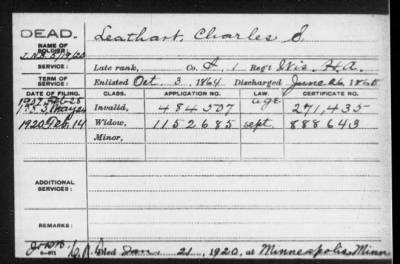 DEAD.
Leathart, Charles S.
NAME OF SOLDIER:
SERVICE:
Late rank, Co. 1 Reg't Wis. H.A.
TERM OF SERVICE:
Enlisted Oct 3, 1864 Discharged June 26, 1865
DATE OF FILING. CLASS. APPLICATION NO. LAW. CERTIFICATE NO.
age
1907 Feb 25 Invalid, 484507 271,435
1920 Feb. 14 Widow, 1152685 Sept. 888643
Minor,
ADDITIONAL SERVICES:
REMARKS:
Died Jan 21, 1920, at Minneapolis, Minn